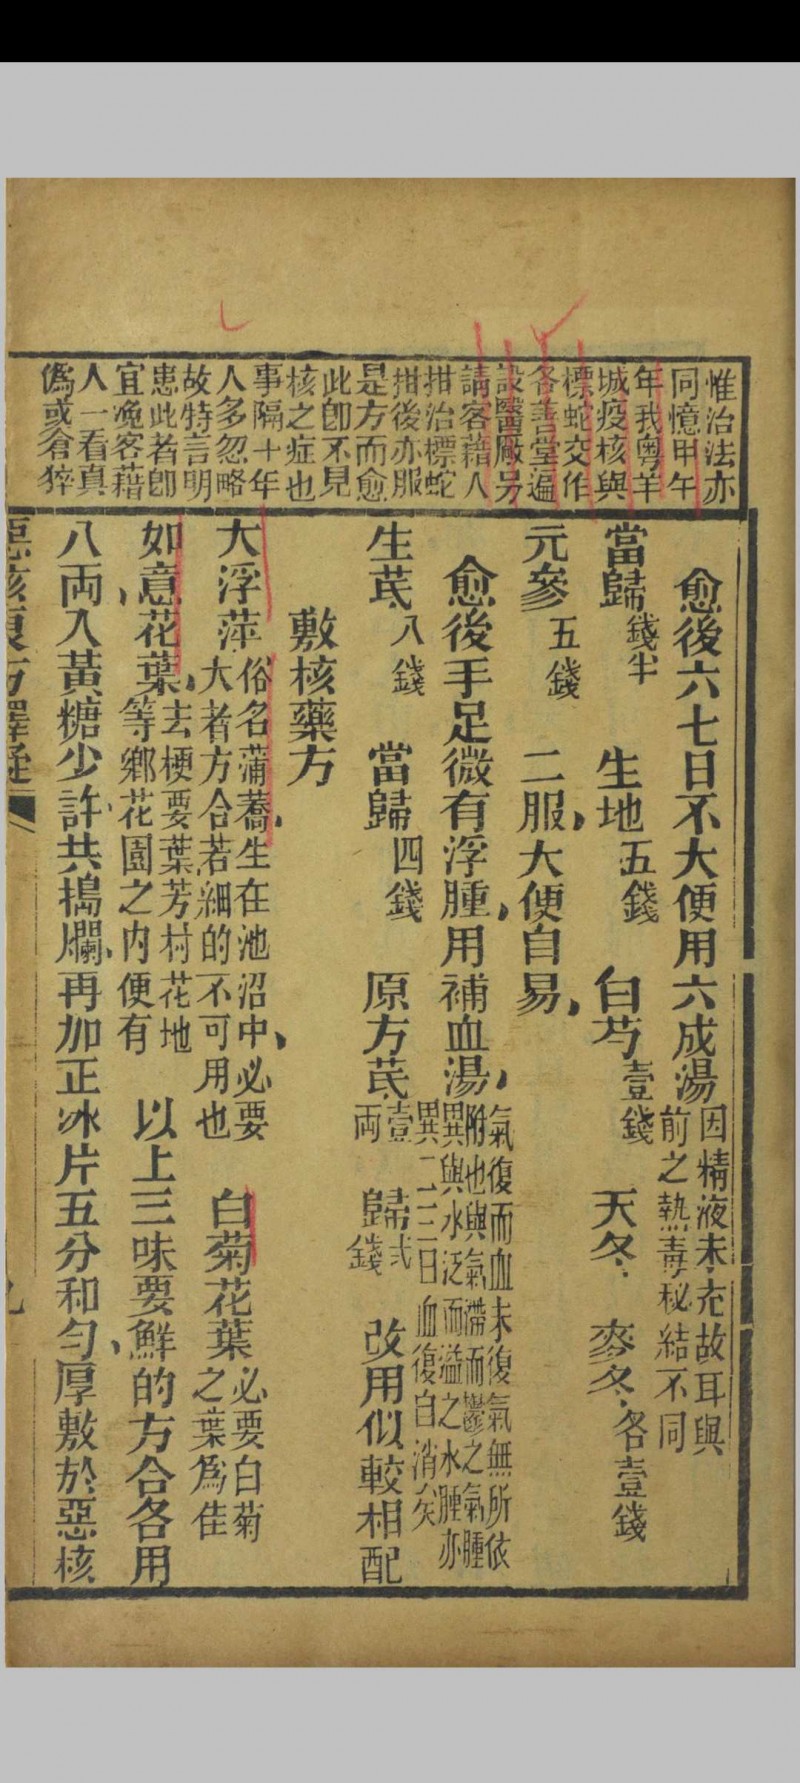 惟治法亦
同憶甲午
年我粵羊
城疫核與
標蛇交作
各善堂遍
設醫廠另
請客藉人
拑治標蛇
拑後亦服
是方而愈
此卽不見
核之症也
事隔十年
人多忽略
故特言明
患此者卽
宜凂客藉
人一看真
僞或倉猝
愈後六七日不大便用六成湯 因精液未充故耳與前之熱毒秘結不同
當歸錢半 生地五錢 白芍壹錢 天冬 麥冬各壹錢
元參五錢 二服大便自易
愈後手足微有浮腫用補血湯 氣復而血未復氣無所依附也與氣滯而鬱之氣腫異與水泛而溢之水腫亦異二三日血復自消矣
生芪八錢 當歸四錢 原方芪壹両 歸弍錢 改用似較相配
敷核藥方
大浮萍 俗名蒲蕎生在池沼中必要大者方合若細的不可用也 白菊花葉 必要白菊之葉爲佳
如意花葉 去梗要葉芳村花地等鄉花園之內便有 以上三味要鮮的方合各用
八両入黃糖少許共搗爛再加正冰片五分和勻厚敷於惡核